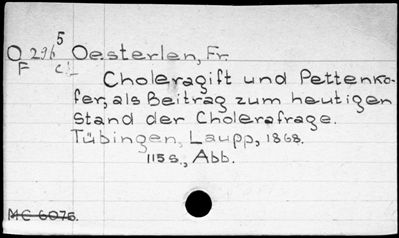 O 296 5 Oesterlen, Fr.
F
Choleragift und Pettenko-
fer, als Beitrag zum heutigen
Stand der Cholerafrage.
Tübingen, Laupp, 1868.
115 S., Abb.
MC 6076.